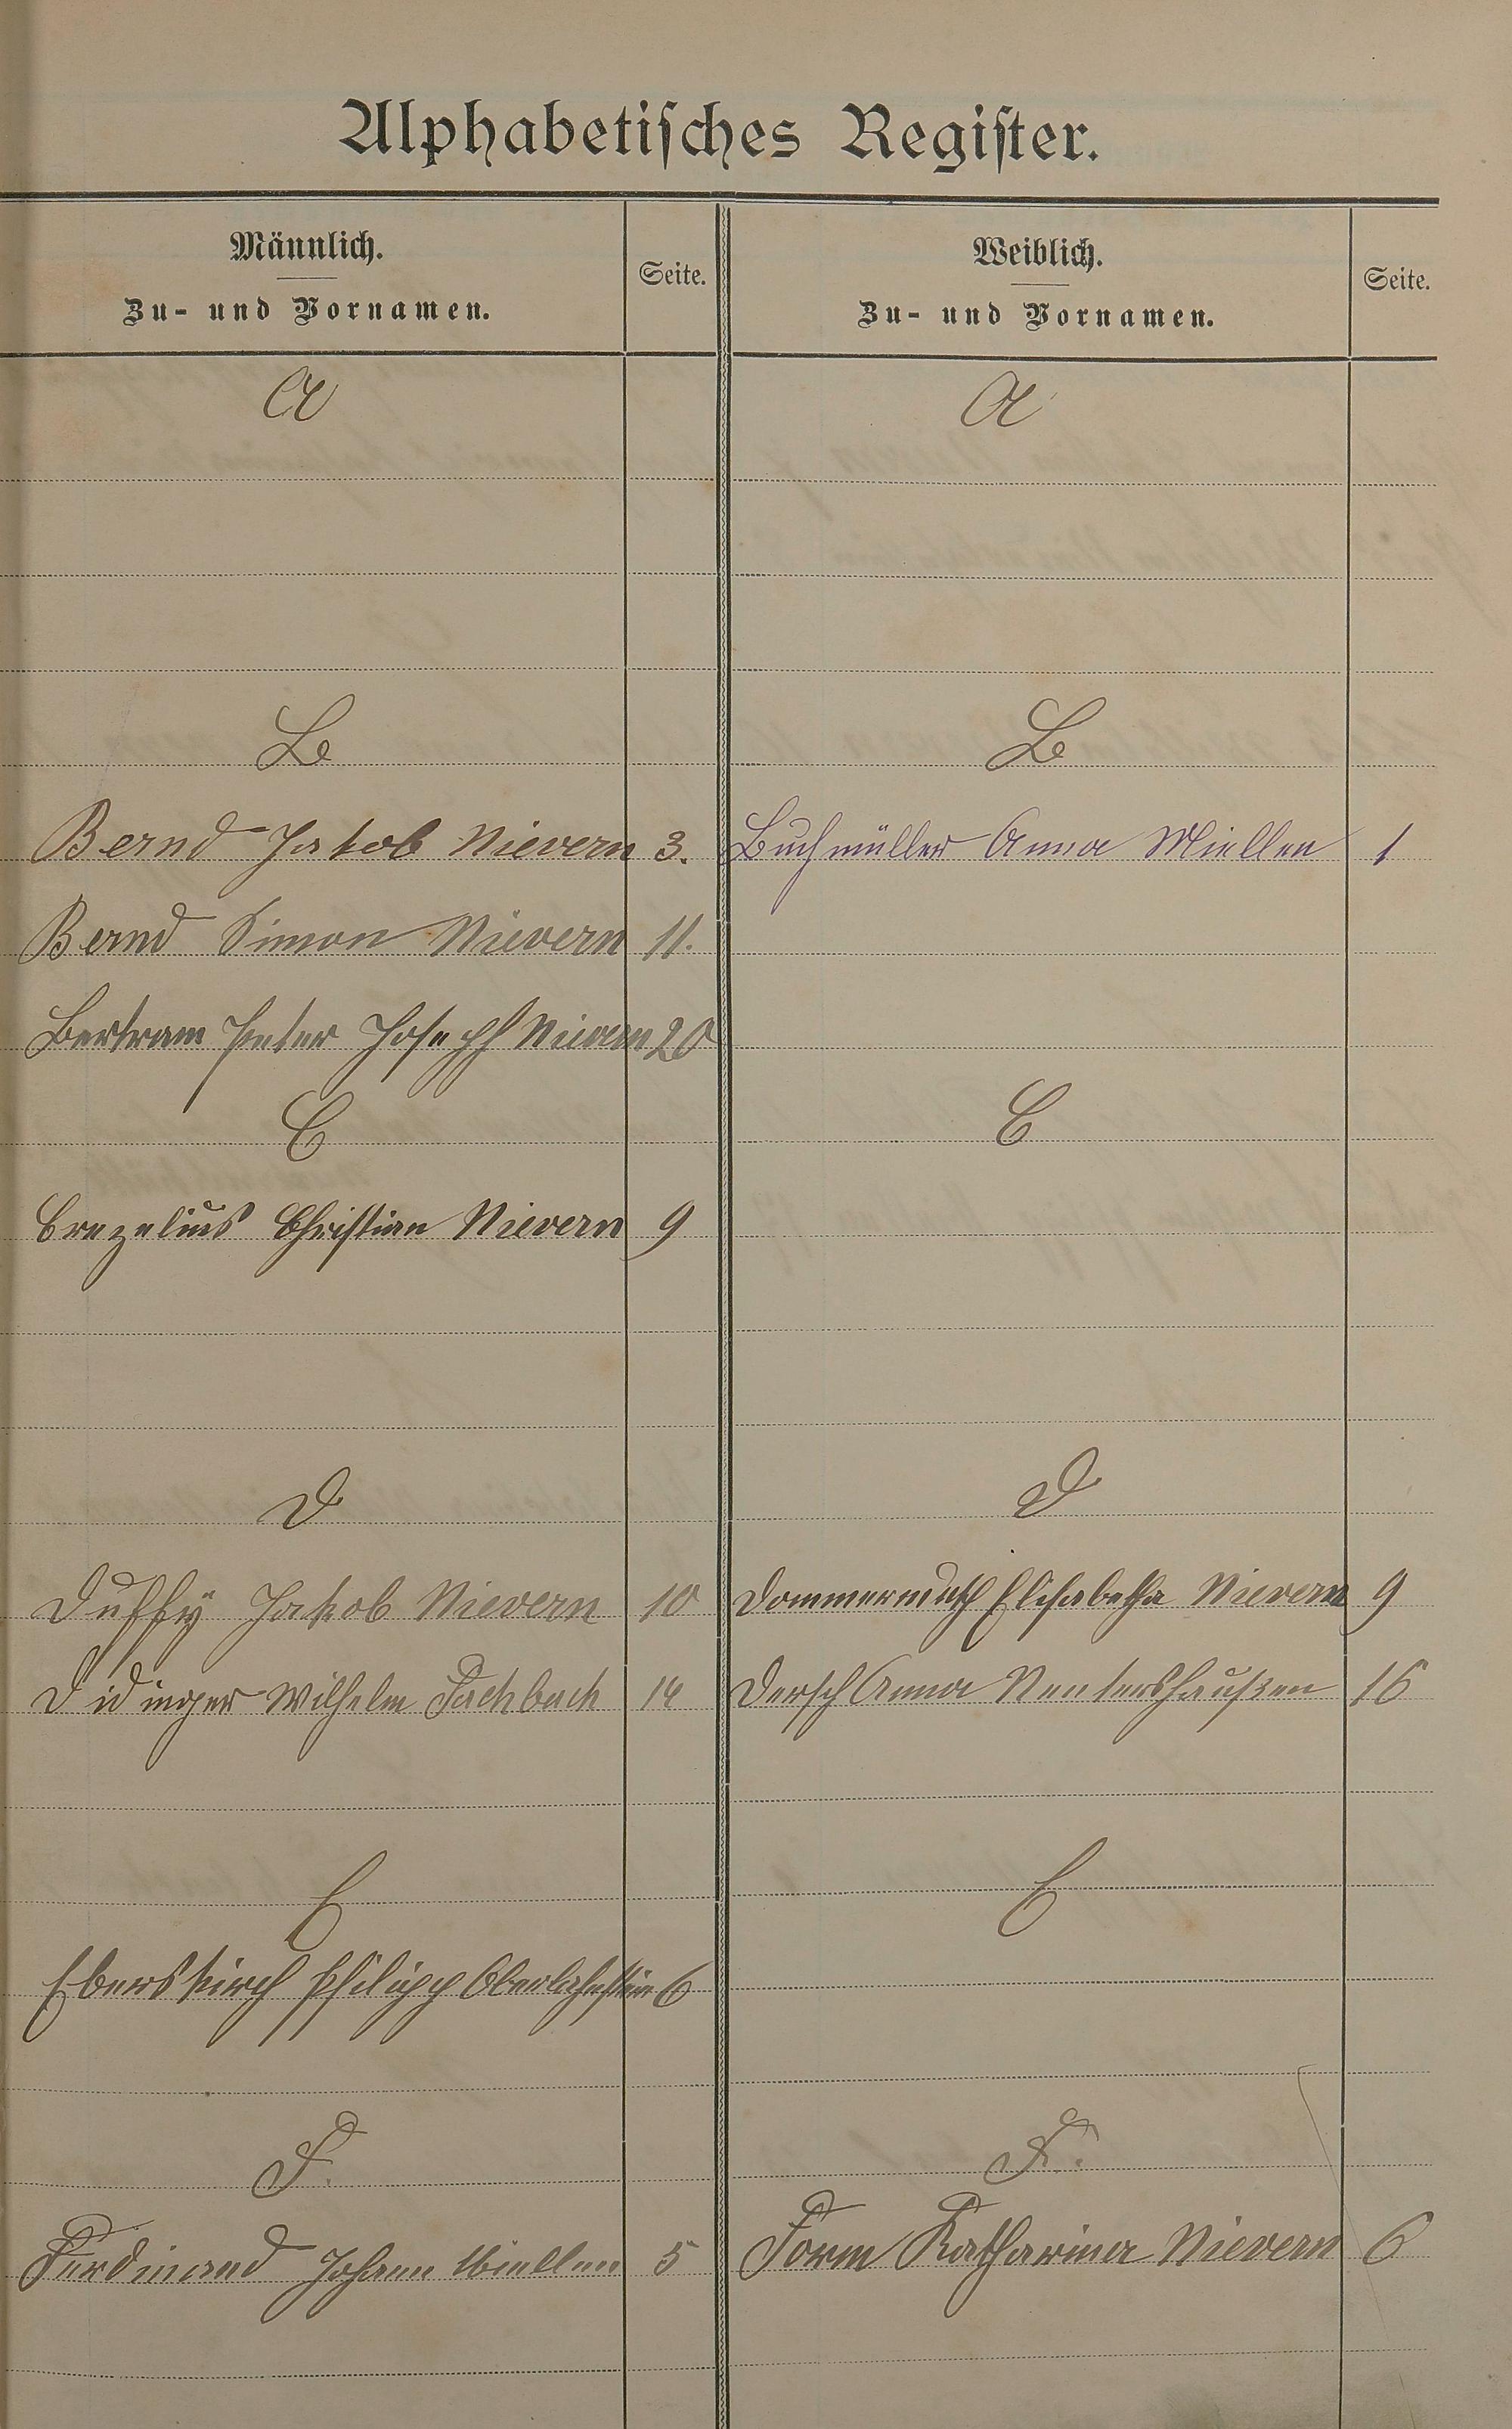 Alphabetisches Register.
Männlich. Weiblich.
Seite. Seite.
Zu- und Vornamen. Zu- und Vornamen.
A A
B B
Bernd Jakob Nievern 3. Buchmüller Anna Miellen 1
Bernd Simon Nievern 11.
Bertram Peter Joseph Nievern 20
C C
Crezelius Christian Nievern 9
D D
Duffÿ Jakob Nievern 10 Dommermuth Elisabetha Nievern 9
Didinger Wilhelm Fachbach 14 Dersch Anna Nentershaußen 16
E E
Eberskirch Philipp Oberlahnstein 6
F. F.
Ferdinand Johann Miellen 5 Form Katharina Nievern 6